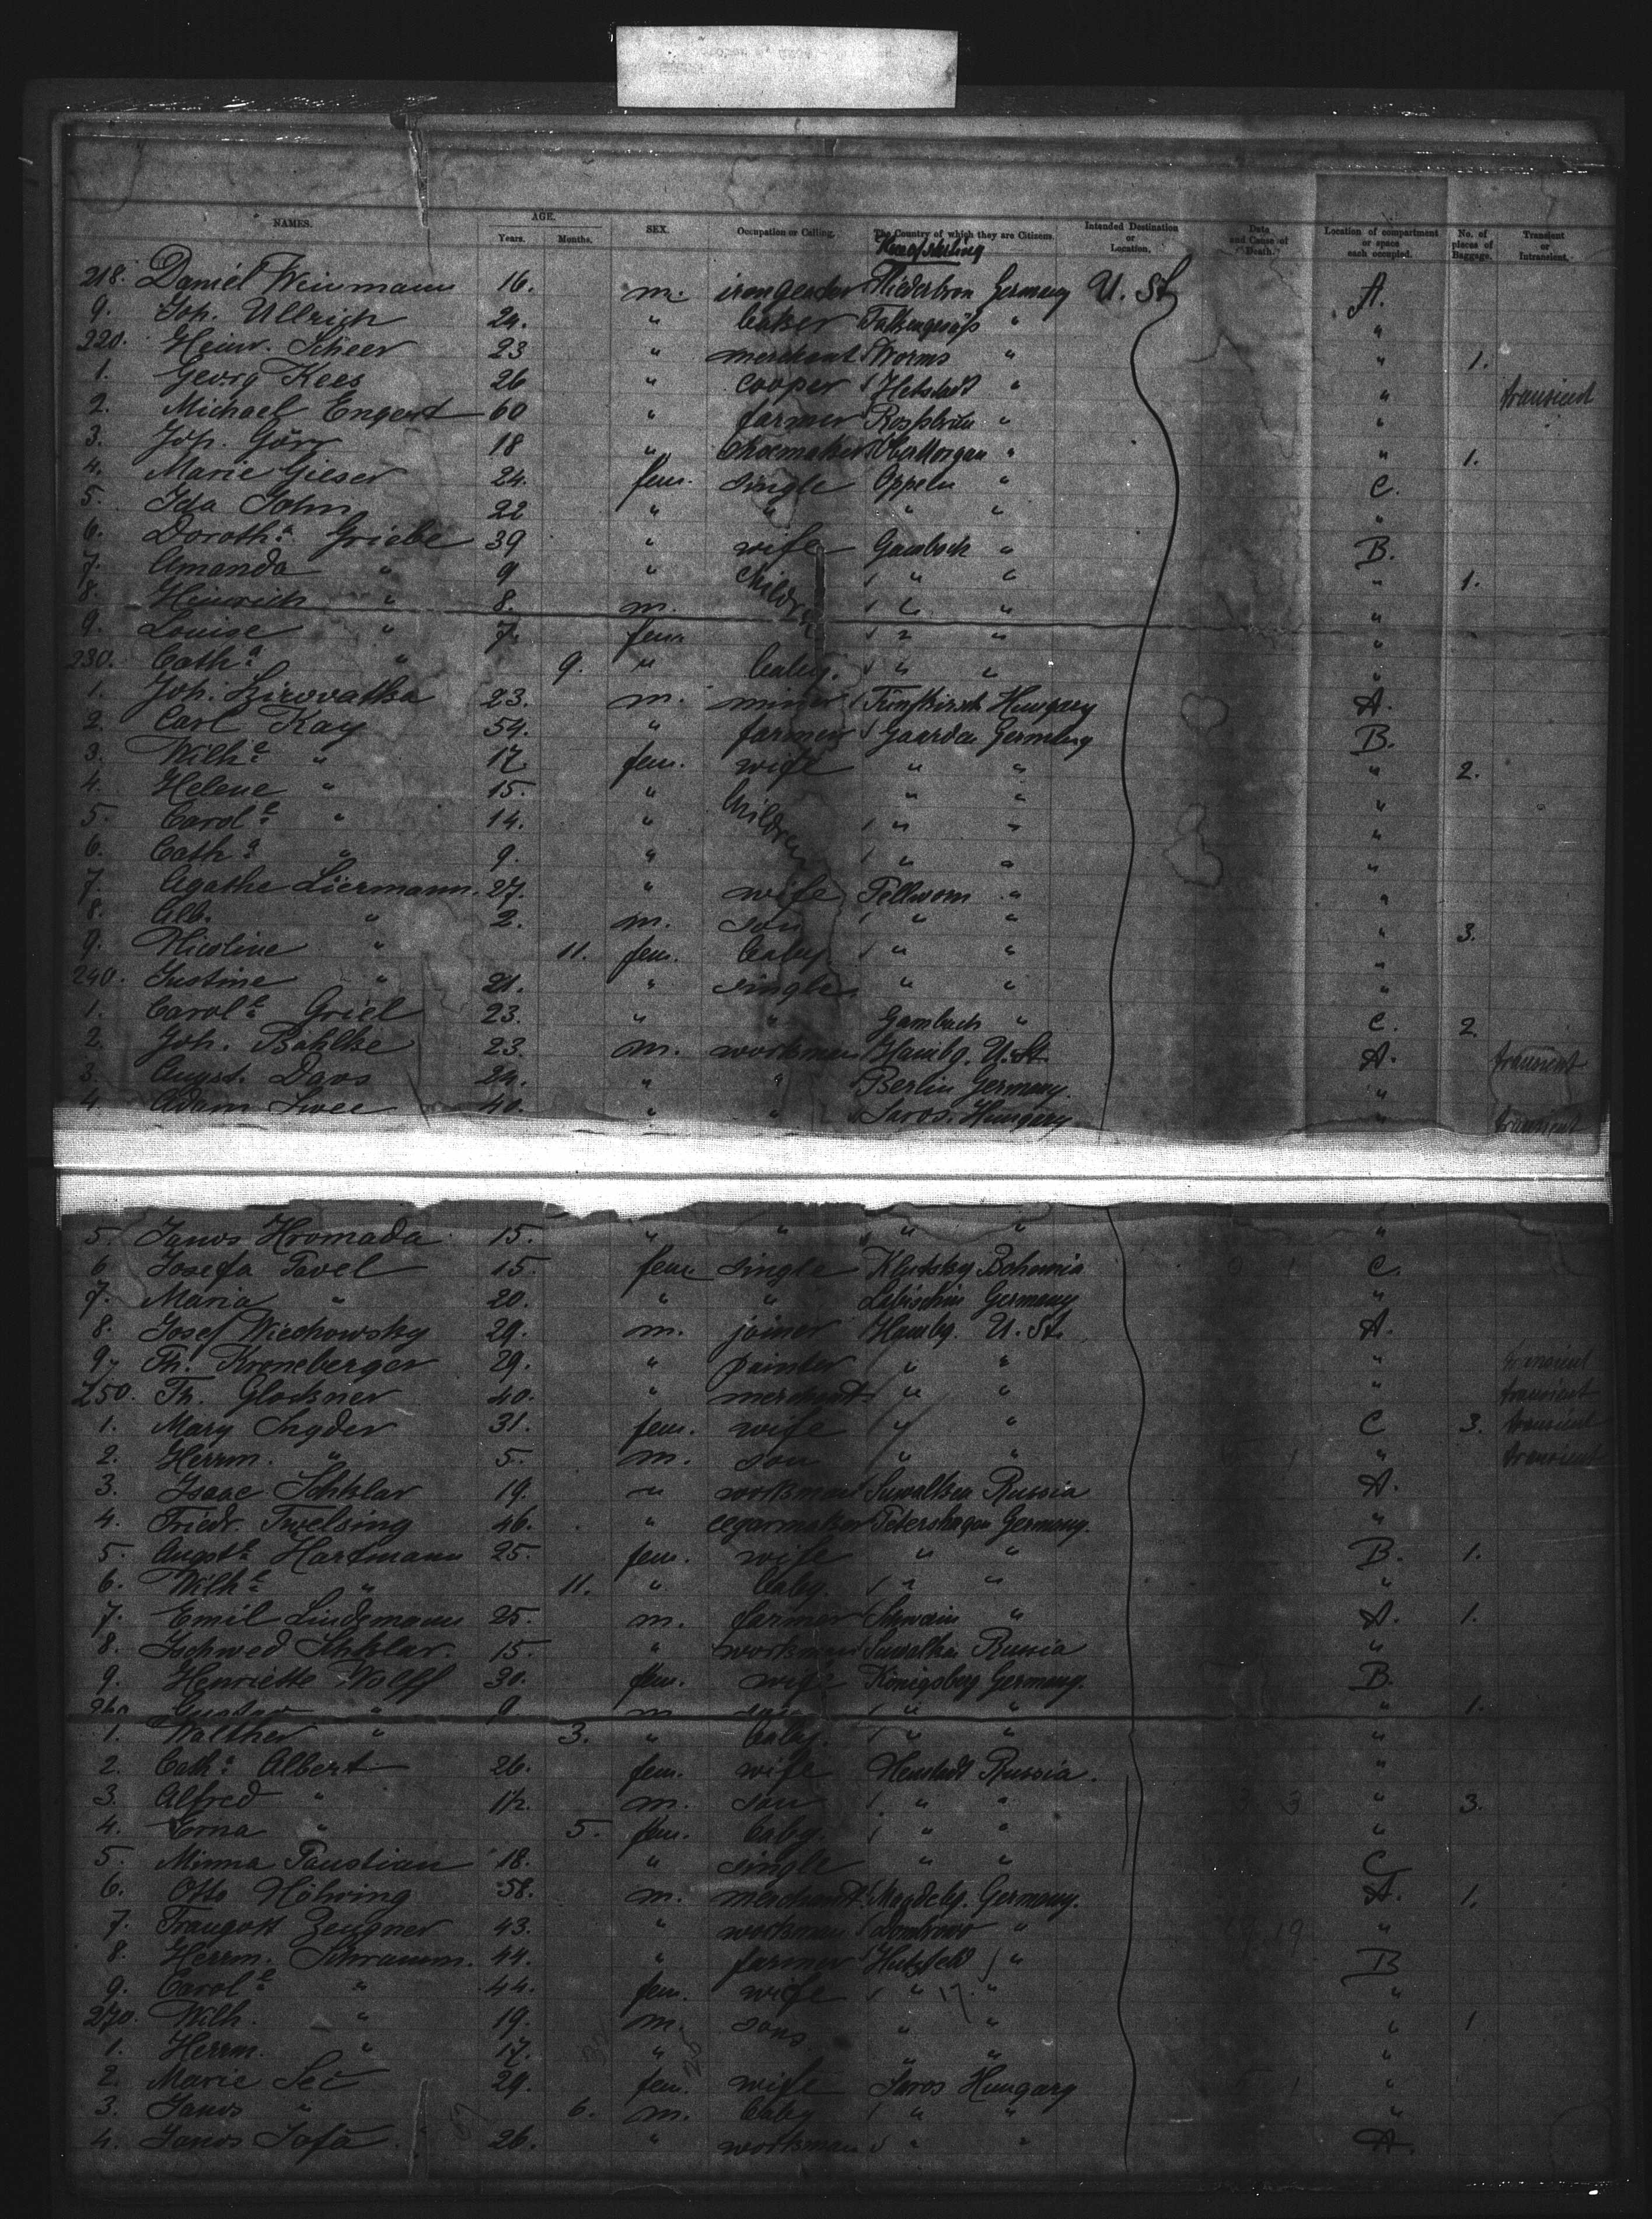 NAMES. AGE. Years. Months. SEX. Occupation or Calling. The Country of which they are Citizens. Intended Destination or Location. Date and Cause of Death. Location of compartment or space each occupied. No. of pieces of Baggage. Transient or Intransient.
218. Daniel Weinmann 16. m. Niederbron Germany U. St. A.
9. Joh. Ullrich 24. " baker "  "
220. Heinr. Scheer 23 " merchant Worms " " 1.
1. Georg Kees 26 " cooper Hetstadt " " transient
2. Michael Engert 60 " farmer Rossbrun " "
3. Joh. Görr 18 " shoemaker " " 1.
4. Marie Gieser 24. fem. single Oppeln " C.
5. Ida John 22 " " " " "
6. Doroth.a Griebe 39 " wife Gambach " B.
7. Amanda " 9 " children " " " 1.
8. Heinrich " 8. m. " " "
9. Louise " 7. fem. " " "
230. Cath.a " 9. " baby. " " "
1. Joh. 23. m. miner Fünfkirch Hungary A.
2. Carl Kay 54. " farmer Gaarden Germany B.
3. Wilh.e " 17 fem. wife " " " 2.
4. Helene " 15. " children " " "
5. Carol.e " 14. " " " "
6. Cath.a " 9. " " " "
7. Agathe Liermann. 27. " wife Pellworm " "
8. Alb. " 2. m. son " " " 3.
9. Nicoline " 11. fem. baby. " " "
240. Justine " 21. " single " " "
1. Carol.e Griel 23. " " Gambach " C. 2
2. Joh. Böhlke 23. m. workman Hambg. U. St. A. transient
3. Augst. Davs 24. " " Berlin Germany. "
4. Adam 40. " " Saros. Hungary " transient
5. Janos Hromada 15. " " " " "
6 Josefa Pavel 15. fem single Bohemia C.
7. Maria " 20. " " Labischin Germany "
8. Josef Wiechowsky 29. m. joiner Hambg. U. St. A.
9. Th. Kroneberger 29. " painter " " " transient
250. Th. Glockner 40. " merchant " " " transient
1. Mary Snyder 31. fem. wife " " C 3. transient
2. Herrm. " 5. m. son " " " transient
3. Isaac Schklar 19. " workman Suwalken Russia A.
4. Friedr. Twelsing 46. " cegarmaker Petershagen Germany. "
5. Augste Hartmann 25. fem. wife " " B. 1.
6. Wilh.e " 11. " baby. " " "
7. Emil Lindemann 25. m. farmer " A. 1.
8. Schklar. 15. " workman Suwalken Russia "
9. Henriette Wolff 30. fem. wife Königsberg Germany. B.
260 Gustav " 9. m son " " " 1.
1. Walther " 3. " baby. " " "
2. Cath.a Albert 26. fem. wife Russia. "
3. Alfred " m. son " " " 3.
4. Erna " 5. fem. baby. " " "
5. Minna Paustian 18. " single " " C
6. Otto Höhring 58. m. merchant Magdebg. Germany. A. 1.
7. Traugott Zeugner 43. " workman Dombrowo " "
8. Herrm. Schramm. 44. " farmer Hutzfeld " B
9. Carol.e " 44. fem. wife " " "
270. Wilh. " 19. m. sons " " " 1
1. Herrm. " 17. " " " "
2. Marie Sec 29. fem. wife Saros Hungary "
3. Janos " 6. m. baby " " "
4. Janos Safa 26. " workman " " A.